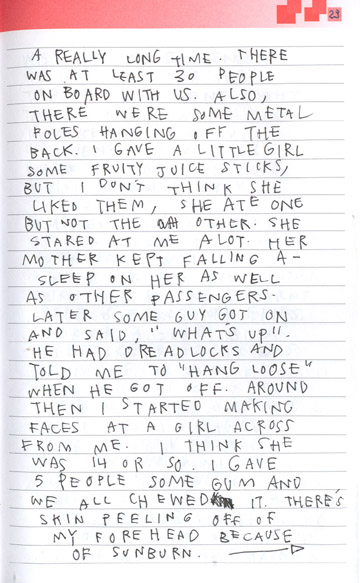 23
A REALLY LONG TIME. THERE
WAS AT LEAST 30 PEOPLE
ON BOARD WITH US. ALSO,
THERE WERE SOME METAL
POLES HANGING OFF THE
BACK. I GAVE A LITTLE GIRL
SOME FRUITY JUICE STICKS,
BUT I DON'T THINK SHE
LIKED THEM, SHE ATE ONE
BUT NOT THE OTHER. SHE
STARED AT ME ALOT. HER
MOTHER KEPT FALLING A-
SLEEP ON HER AS WELL
AS OTHER PASSENGERS.
LATER SOME GUY GOT ON
AND SAID, "WHAT'S UP".
HE HAD DREADLOCKS AND
TOLD ME TO "HANG LOOSE"
WHEN HE GOT OFF. AROUND
THEN I STARTED MAKING
FACES AT A GIRL ACROSS
FROM ME. I THINK SHE
WAS 14 OR SO. I GAVE
5 PEOPLE SOME GUM AND
WE ALL CHEWED IT. THERE'S
SKIN PEELING OFF OF
MY FOREHEAD BECAUSE
OF SUNBURN.